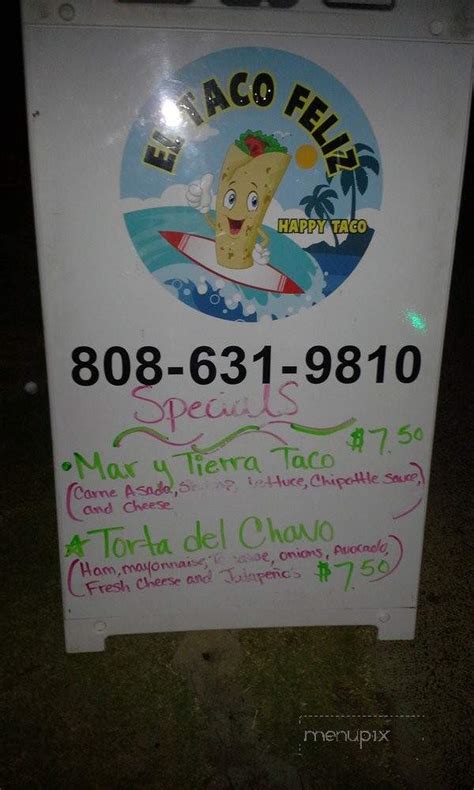 EL TACO FELIZ
HAPPY TACO
808-631-9810
Specials
• Mar y Tierra Taco $7.50
(Carne Asada, Lettuce, Chipottle sauce,
and cheese
Torta del Chavo
(Ham, mayonnaise, onions, Avocado,
Fresh Cheese and Jalapeños $7.50
menupix